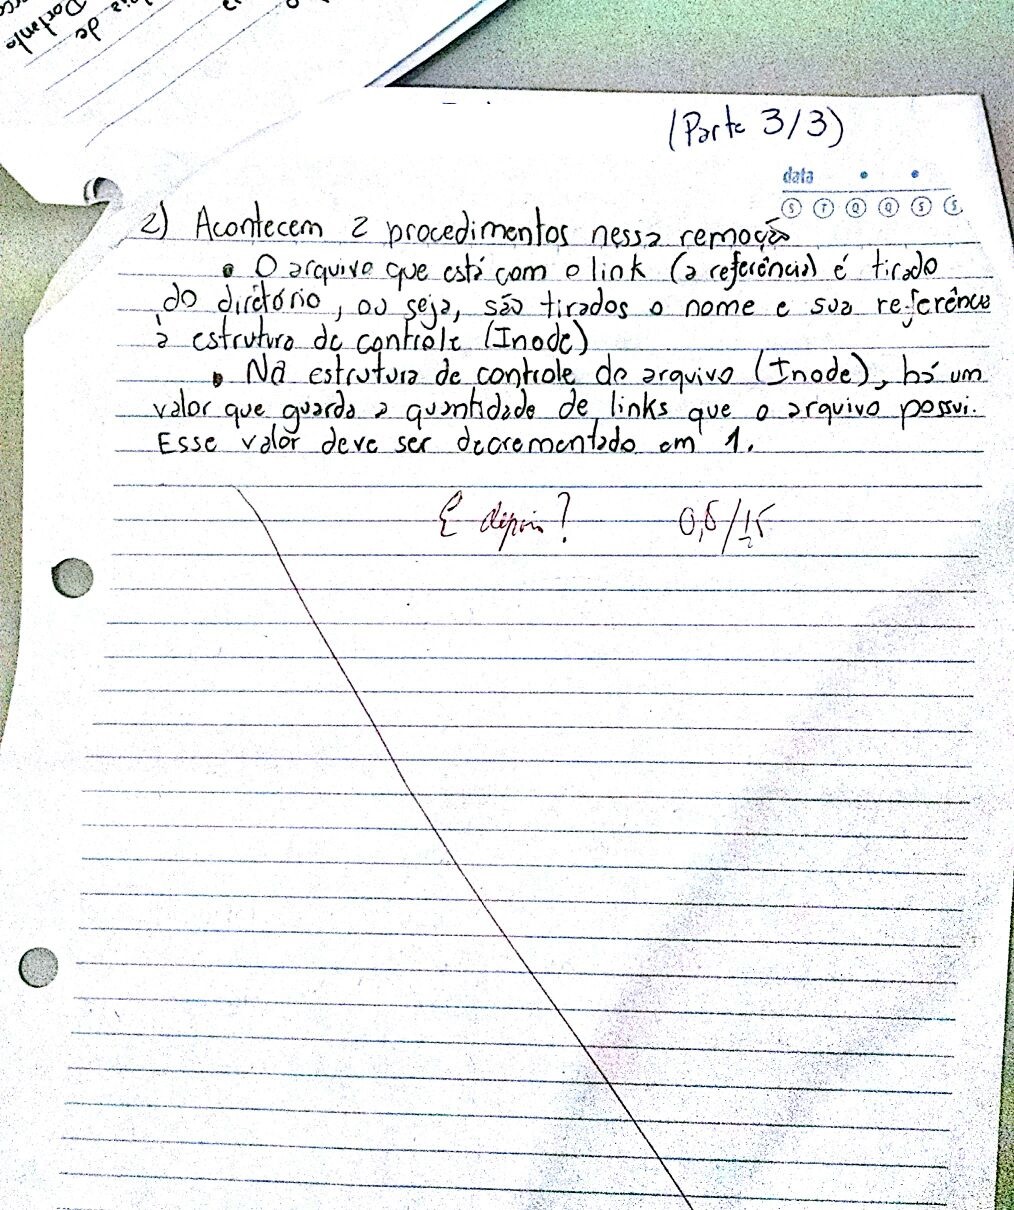 Portanto
de
(Parte 3/3)
data
S T Q Q S S
2) Acontecem 2 procedimentos nessa remoção
• O arquivo que está com o link (a referência) é tirado
do diretório, ou seja, são tirados o nome e sua referênce
à estrutura de controle (Inode)
• Na estrutura de controle do arquivo (Inode), há um
valor que guarda a quantidade de links que o arquivo possui.
Esse valor deve ser decrementado em 1.
E depois? 0,5/